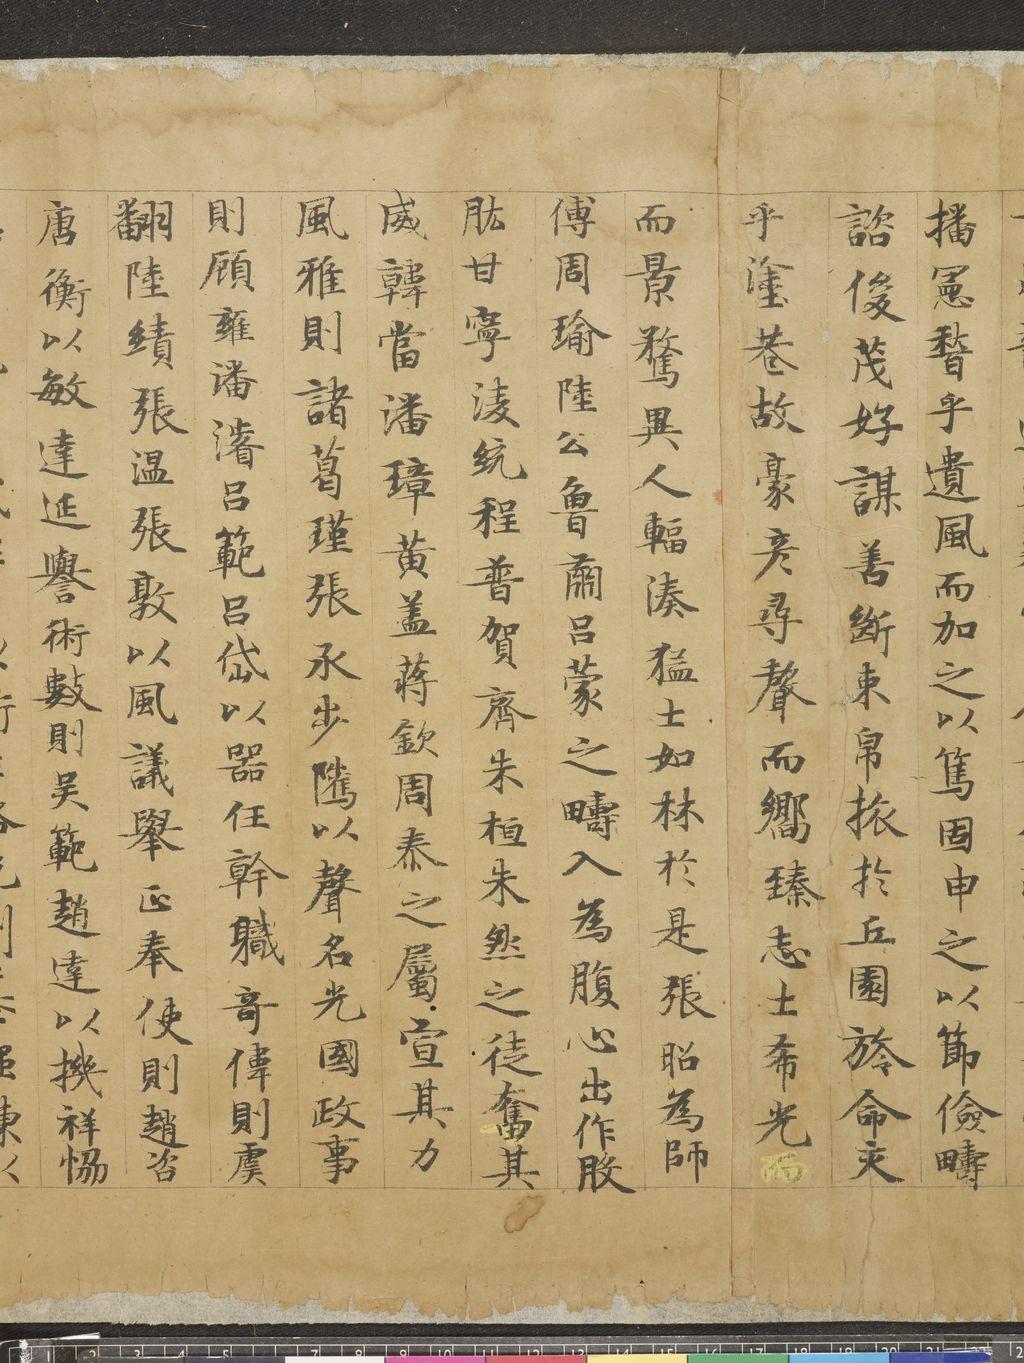 播憲稽乎遺風而加之以篤固申之以節儉疇
諮俊茂好謀善斷束帛旅於丘園旍命交
乎塗巷故豪彦尋聲而嚮臻志士希光而
而景騖異人輻湊猛士如林於是張昭為師
傅周瑜陸公魯肅呂蒙之疇入為腹心出作股
肱甘寧淩統程普賀齊朱桓朱然之徒奮其
威韓當潘璋黄盖蒋欽周泰之屬宣其力
風雅則諸葛瑾張承步隲以聲名光國政事
則顧雍潘濬呂範呂岱以器任幹職竒偉則虞
翻陸績張温張敦以風議舉正奉使則趙咨
唐衡以敏達延譽術數則吴範趙達以機祥恊